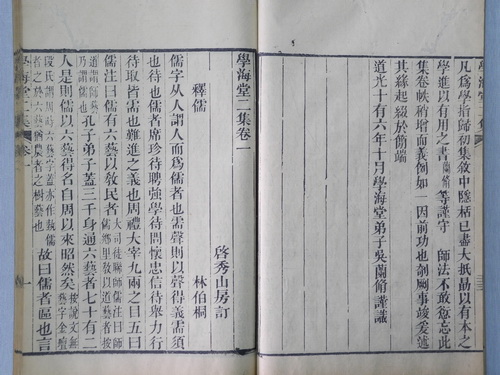 凡爲學指歸初集敘中隱栝已盡大抵勗以有本之
學進以有用之書蘭脩等謹守 師法不敢愆忘此
集卷帙稍增而義例如一因前功也剞劂事竣爰述
其緣起綴於簡端
道光十有六年十月學海堂弟子吳蘭脩謹識
學海堂二集卷一
啓秀山房訂
釋儒 林伯桐
儒字从人謂人而爲儒者也需聲則以聲得義需須
也待也儒者席珍待聘強學待問懷忠信待舉力行
待取皆需也難進之義也周禮大宰九兩之目五曰
儒注曰儒有六藝以敎民者大司徒聯師儒注曰師儒鄉里敎以道藝者按
道謂師藝乃謂儒也孔子弟子蓋三千身通六藝者七十有二
人是則儒以六藝得名自周以來昭然矣按說文無藝字金壇
段氏謂周時六藝字蓋亦作埶儒者之於六藝猶農者之樹藝也故曰儒者區也言
學海堂二集